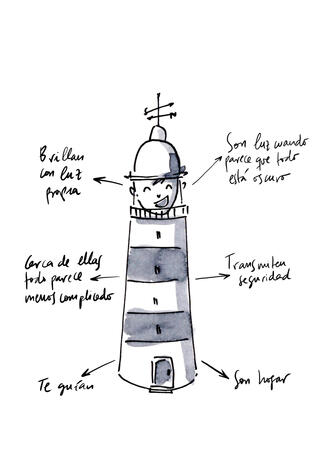 Brillan
con luz
propia
Son luz cuando
parece que todo
está oscuro
Cerca de ellas
todo parece
menos complicado
Transmiten
seguridad
Te guían
Son hogar